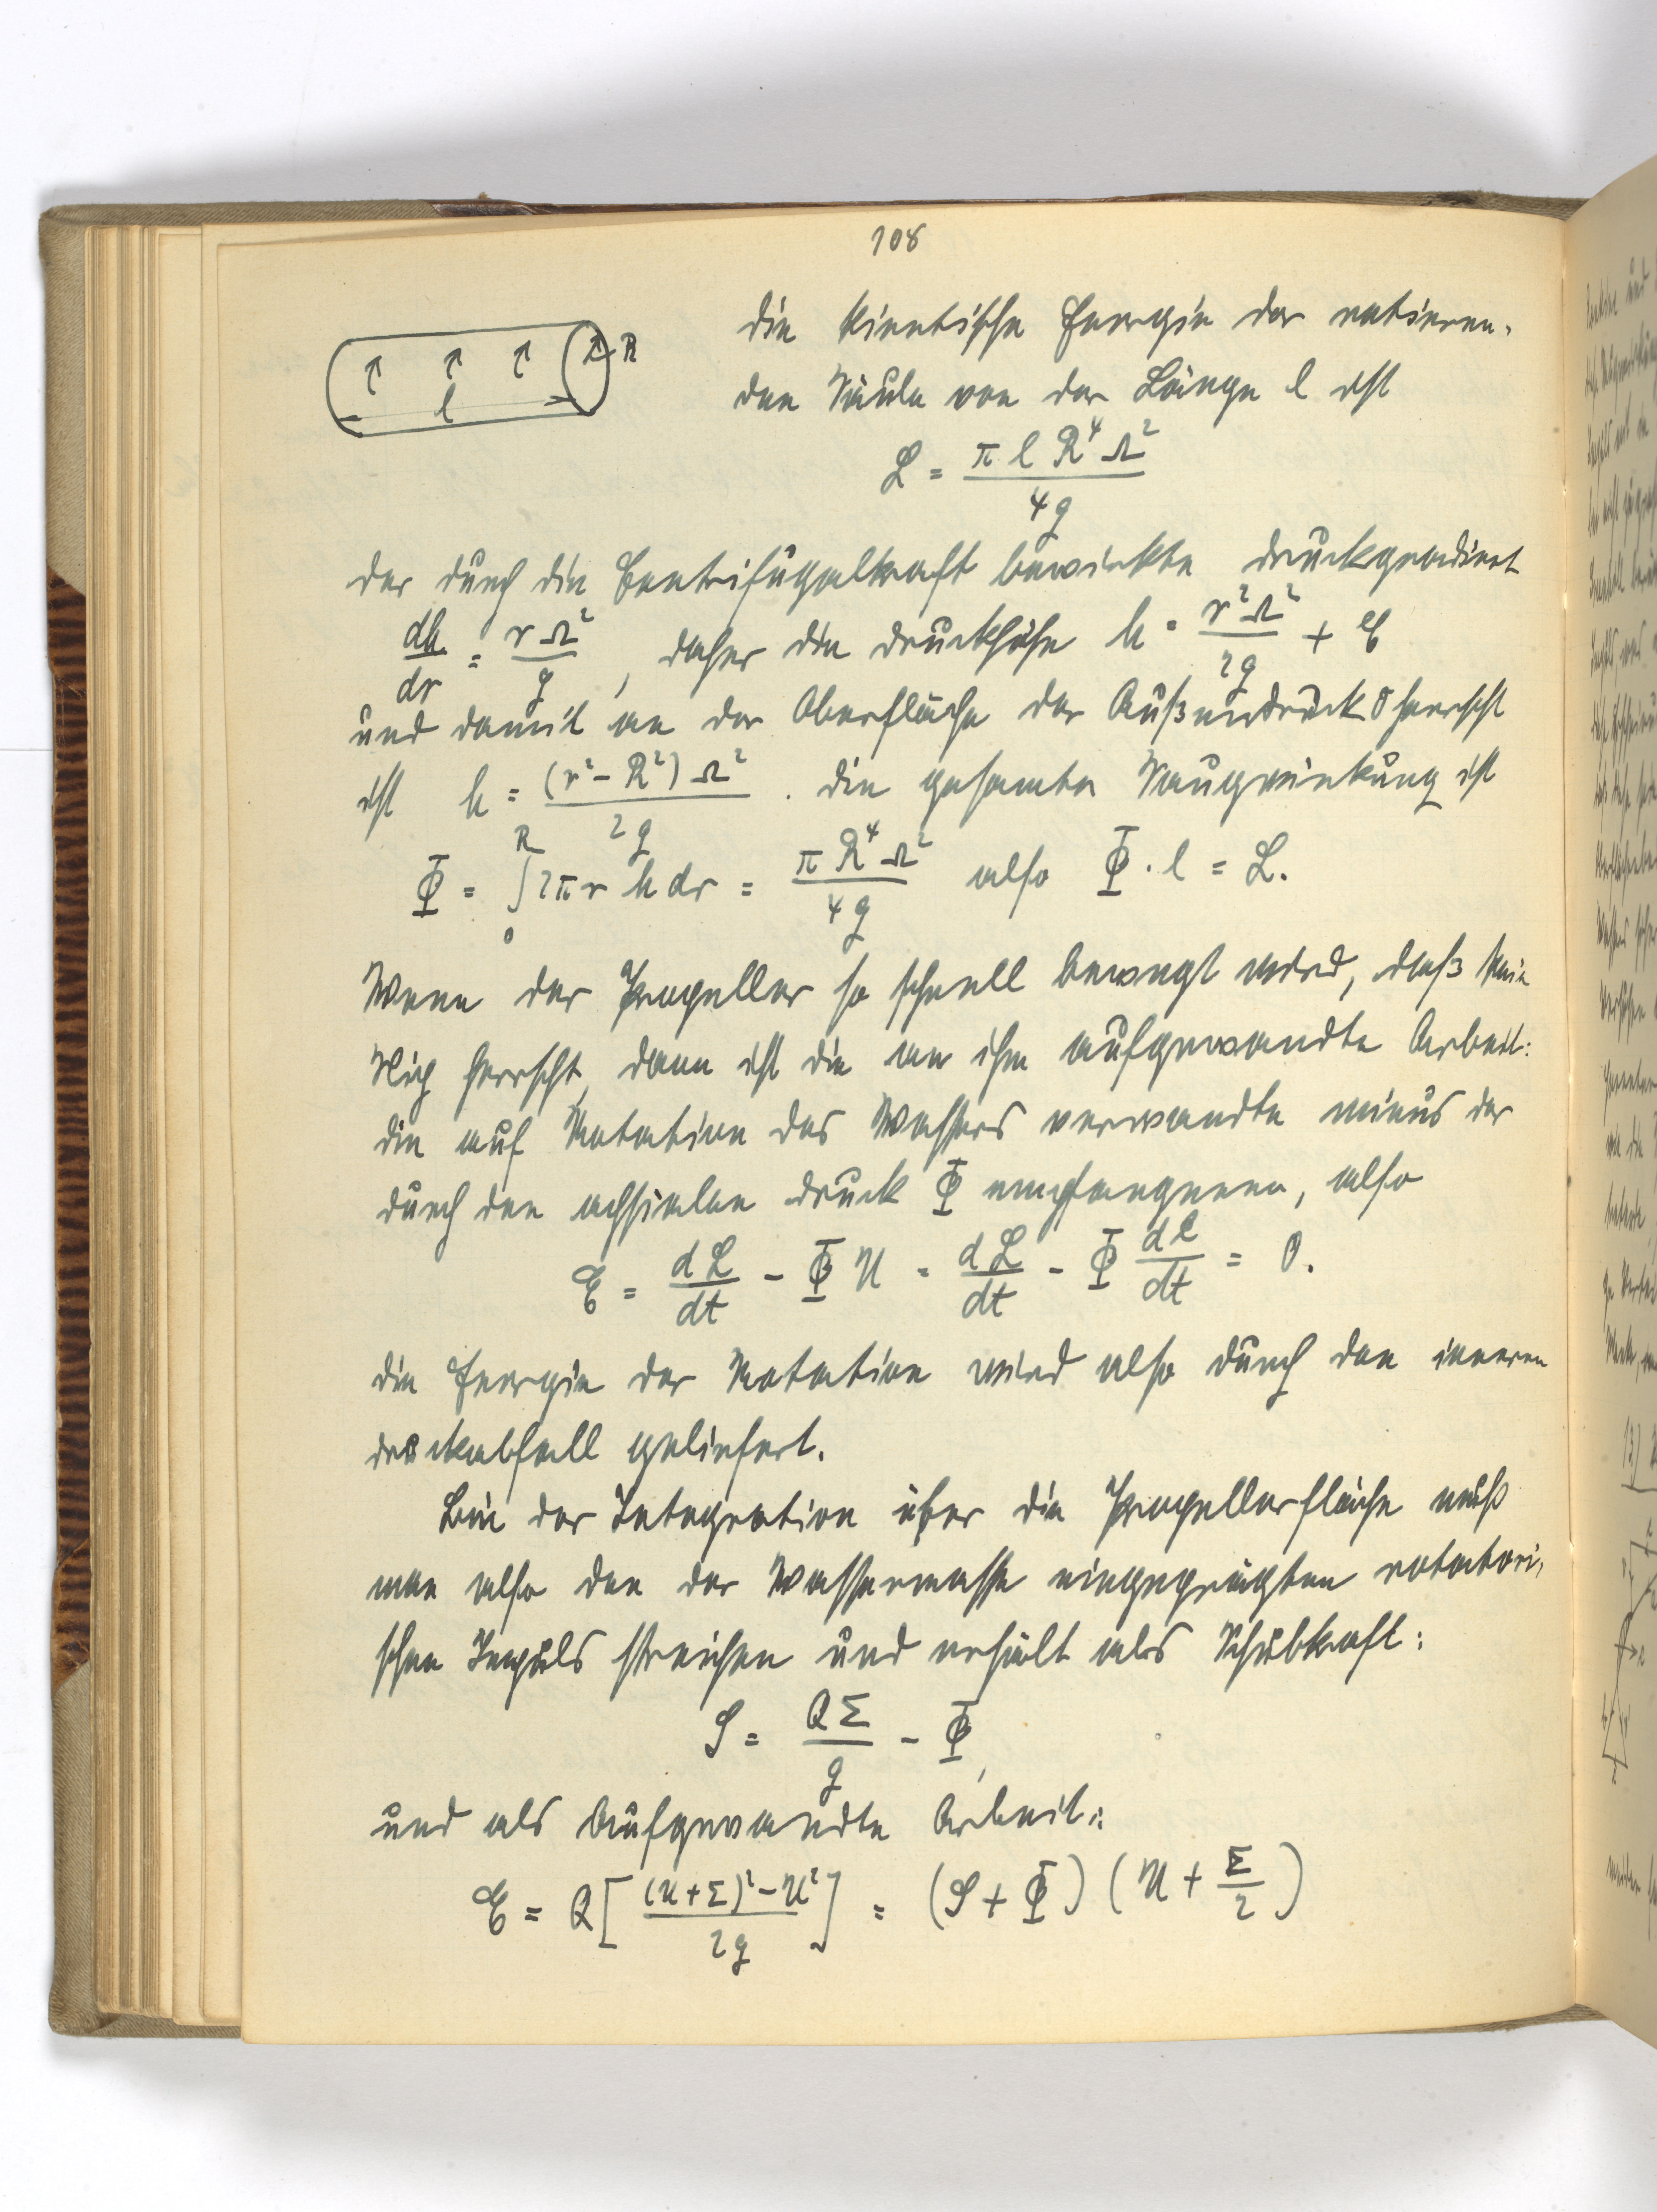 108
die kinetische Energie der rotieren-
den Säule von der Länge l ist
R
l
L = π l R⁴ Ω² / 4g
der durch die Centrifugalkraft bewirkte Druckgradient
dh/dr = r Ω² / g , daher die Druckhöhe h = r² Ω² / 2g + C
und damit an der Oberfläche der Außendruck 0 herrscht
ist h = (r² - R²) Ω² / 2g . Die gesamte Saugwirkung ist
Φ = ∫₀ᴿ 2π r h dr = π R⁴ Ω² / 4g also Φ · l = L.
Wenn der Propeller so schnell bewegt wird, daß kein
Slip herrscht, dann ist die an ihm aufgewandte Arbeit:
die auf Rotation des Wassers verwandte minus der
durch den achsialen Druck Φ empfangenen, also
E = dL/dt - Φ U = dL/dt - Φ dl/dt = 0.
die Energie der Rotation wird also durch den inneren
druckabfall geliefert.
Bei der Integration über die Propellerfläche muß
man also den der Wassermasse eingeprägten rotatori-
schen Impuls streichen und erhält als Schubkraft:
S = QΣ/g - Φ,
und als Aufgewandte Arbeit:
E = Q [ (U+Σ)² - U² / 2g ] = (S + Φ) (U + Σ/2)